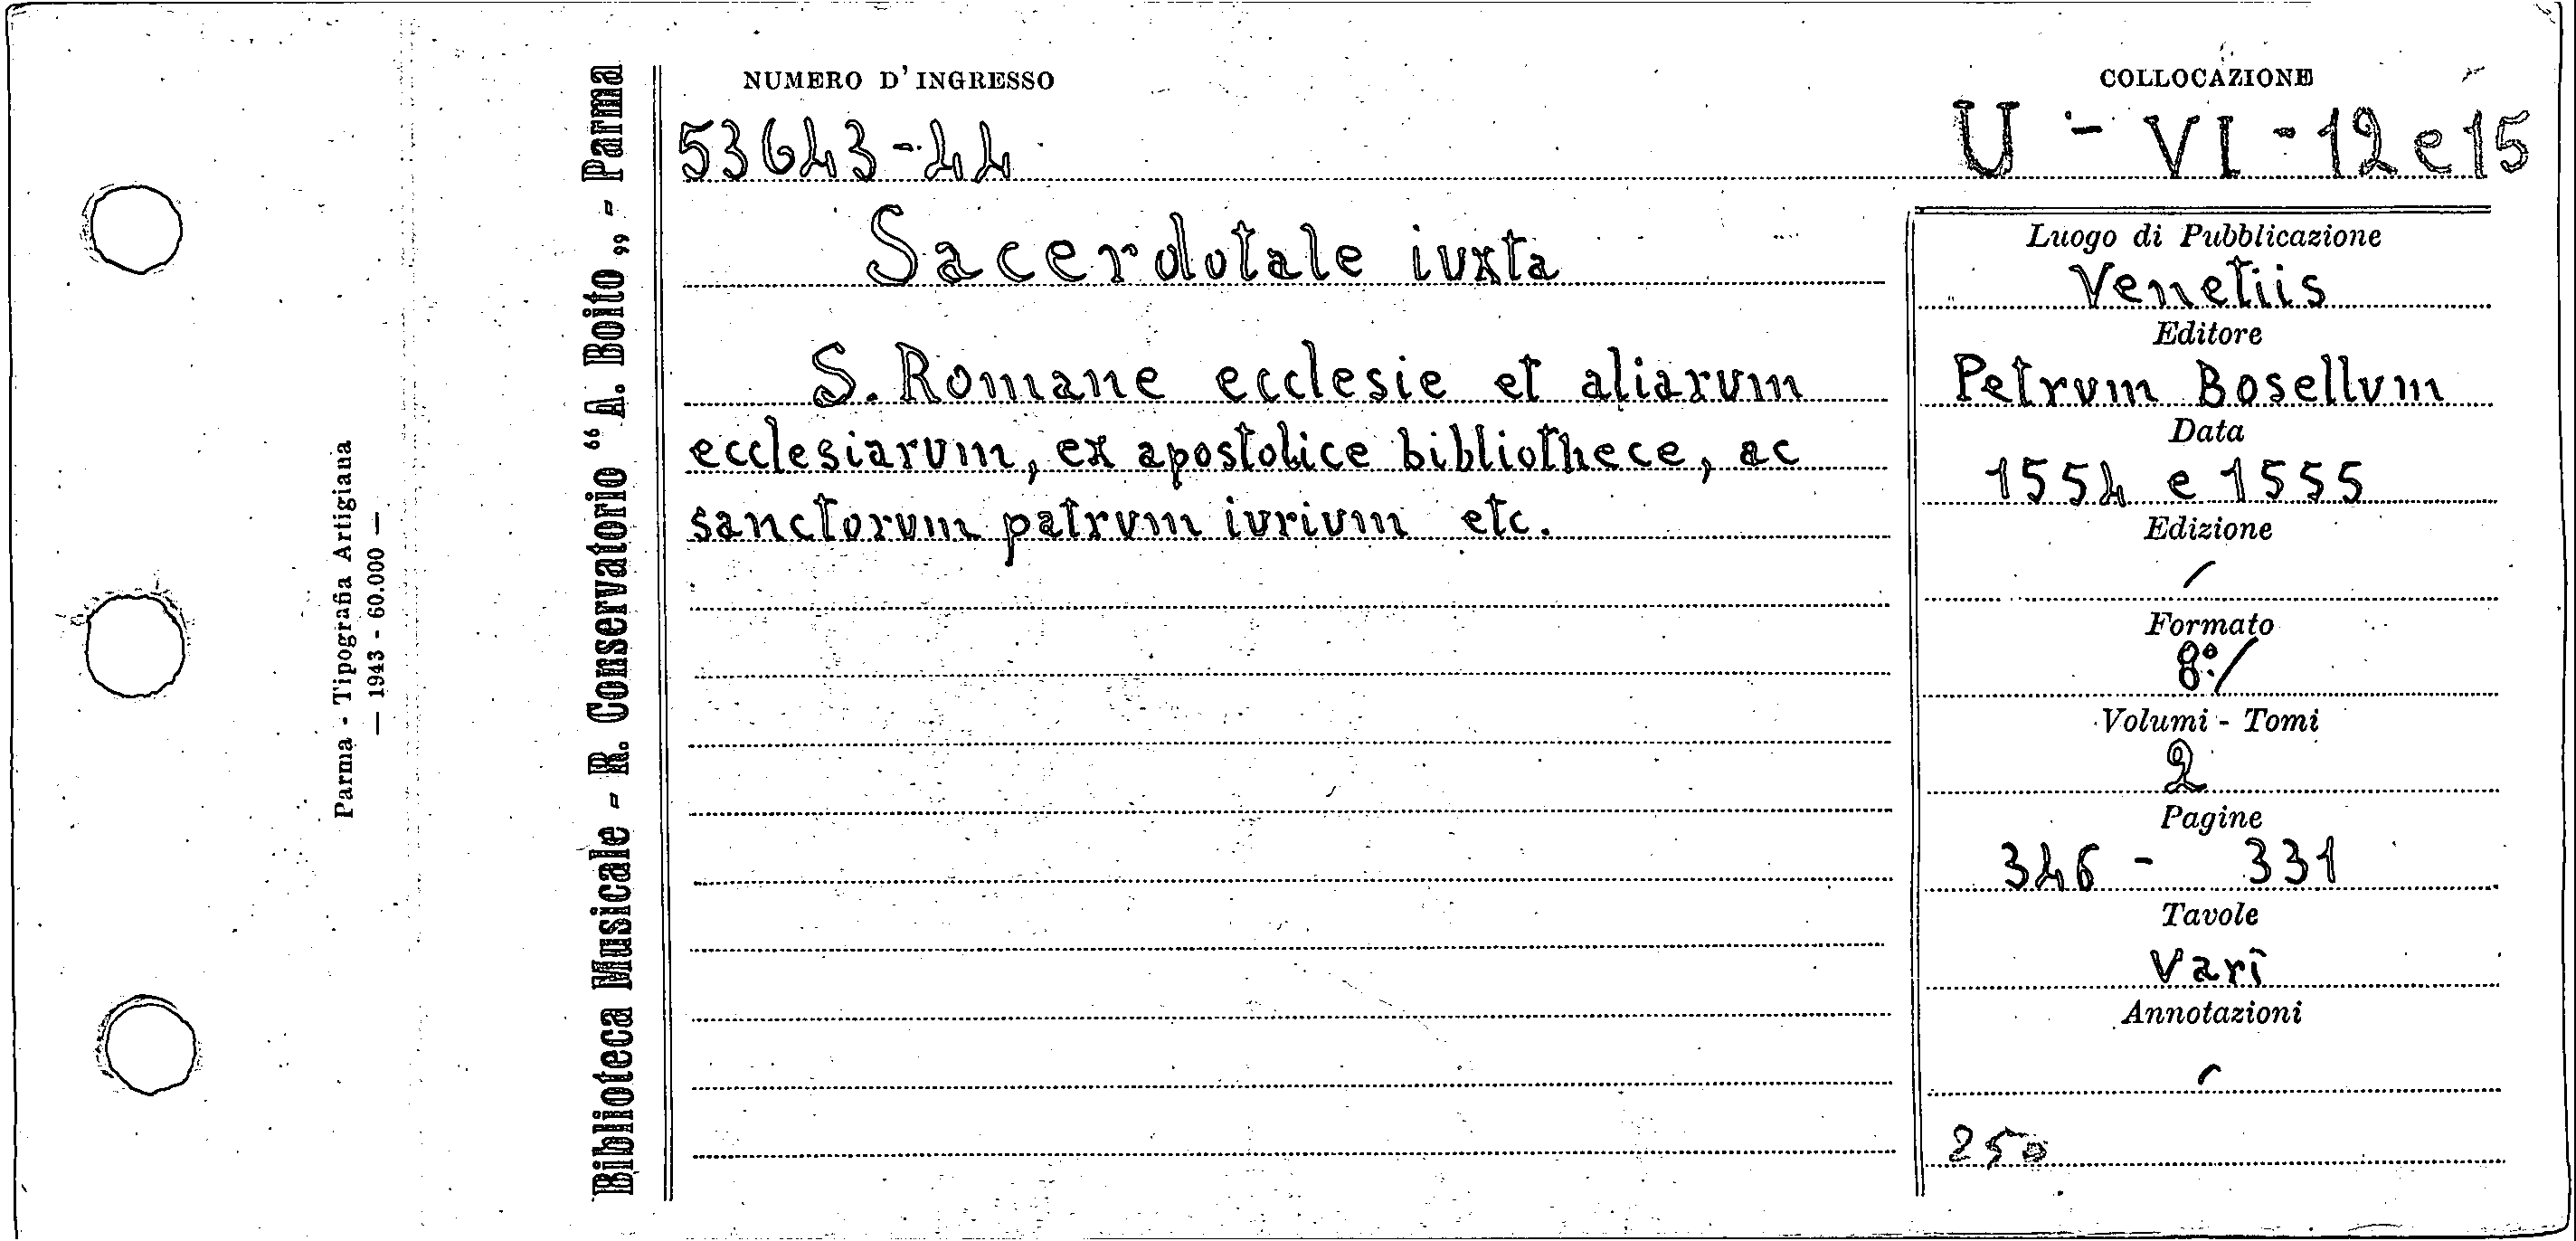 Parma - Tipografia Artigiana
— 1943 - 60.000 —
Biblioteca Musicale - R. Conservatorio “A. Boito„ - Parma
NUMERO D'INGRESSO
53643-44
COLLOCAZIONE
U - VI - 12 e 15
Sacerdotale iuxta
S. Romane ecclesie et aliarum
ecclesiarum, ex apostolice bibliothece, ac
sanctorum patrum iurium etc.
Luogo di Pubblicazione
Venetiis
Editore
Petrum Bosellum
Data
1554 e 1555
Edizione
/
Formato
8°/
Volumi - Tomi
2
Pagine
346 - 331
Tavole
Varî
Annotazioni
250